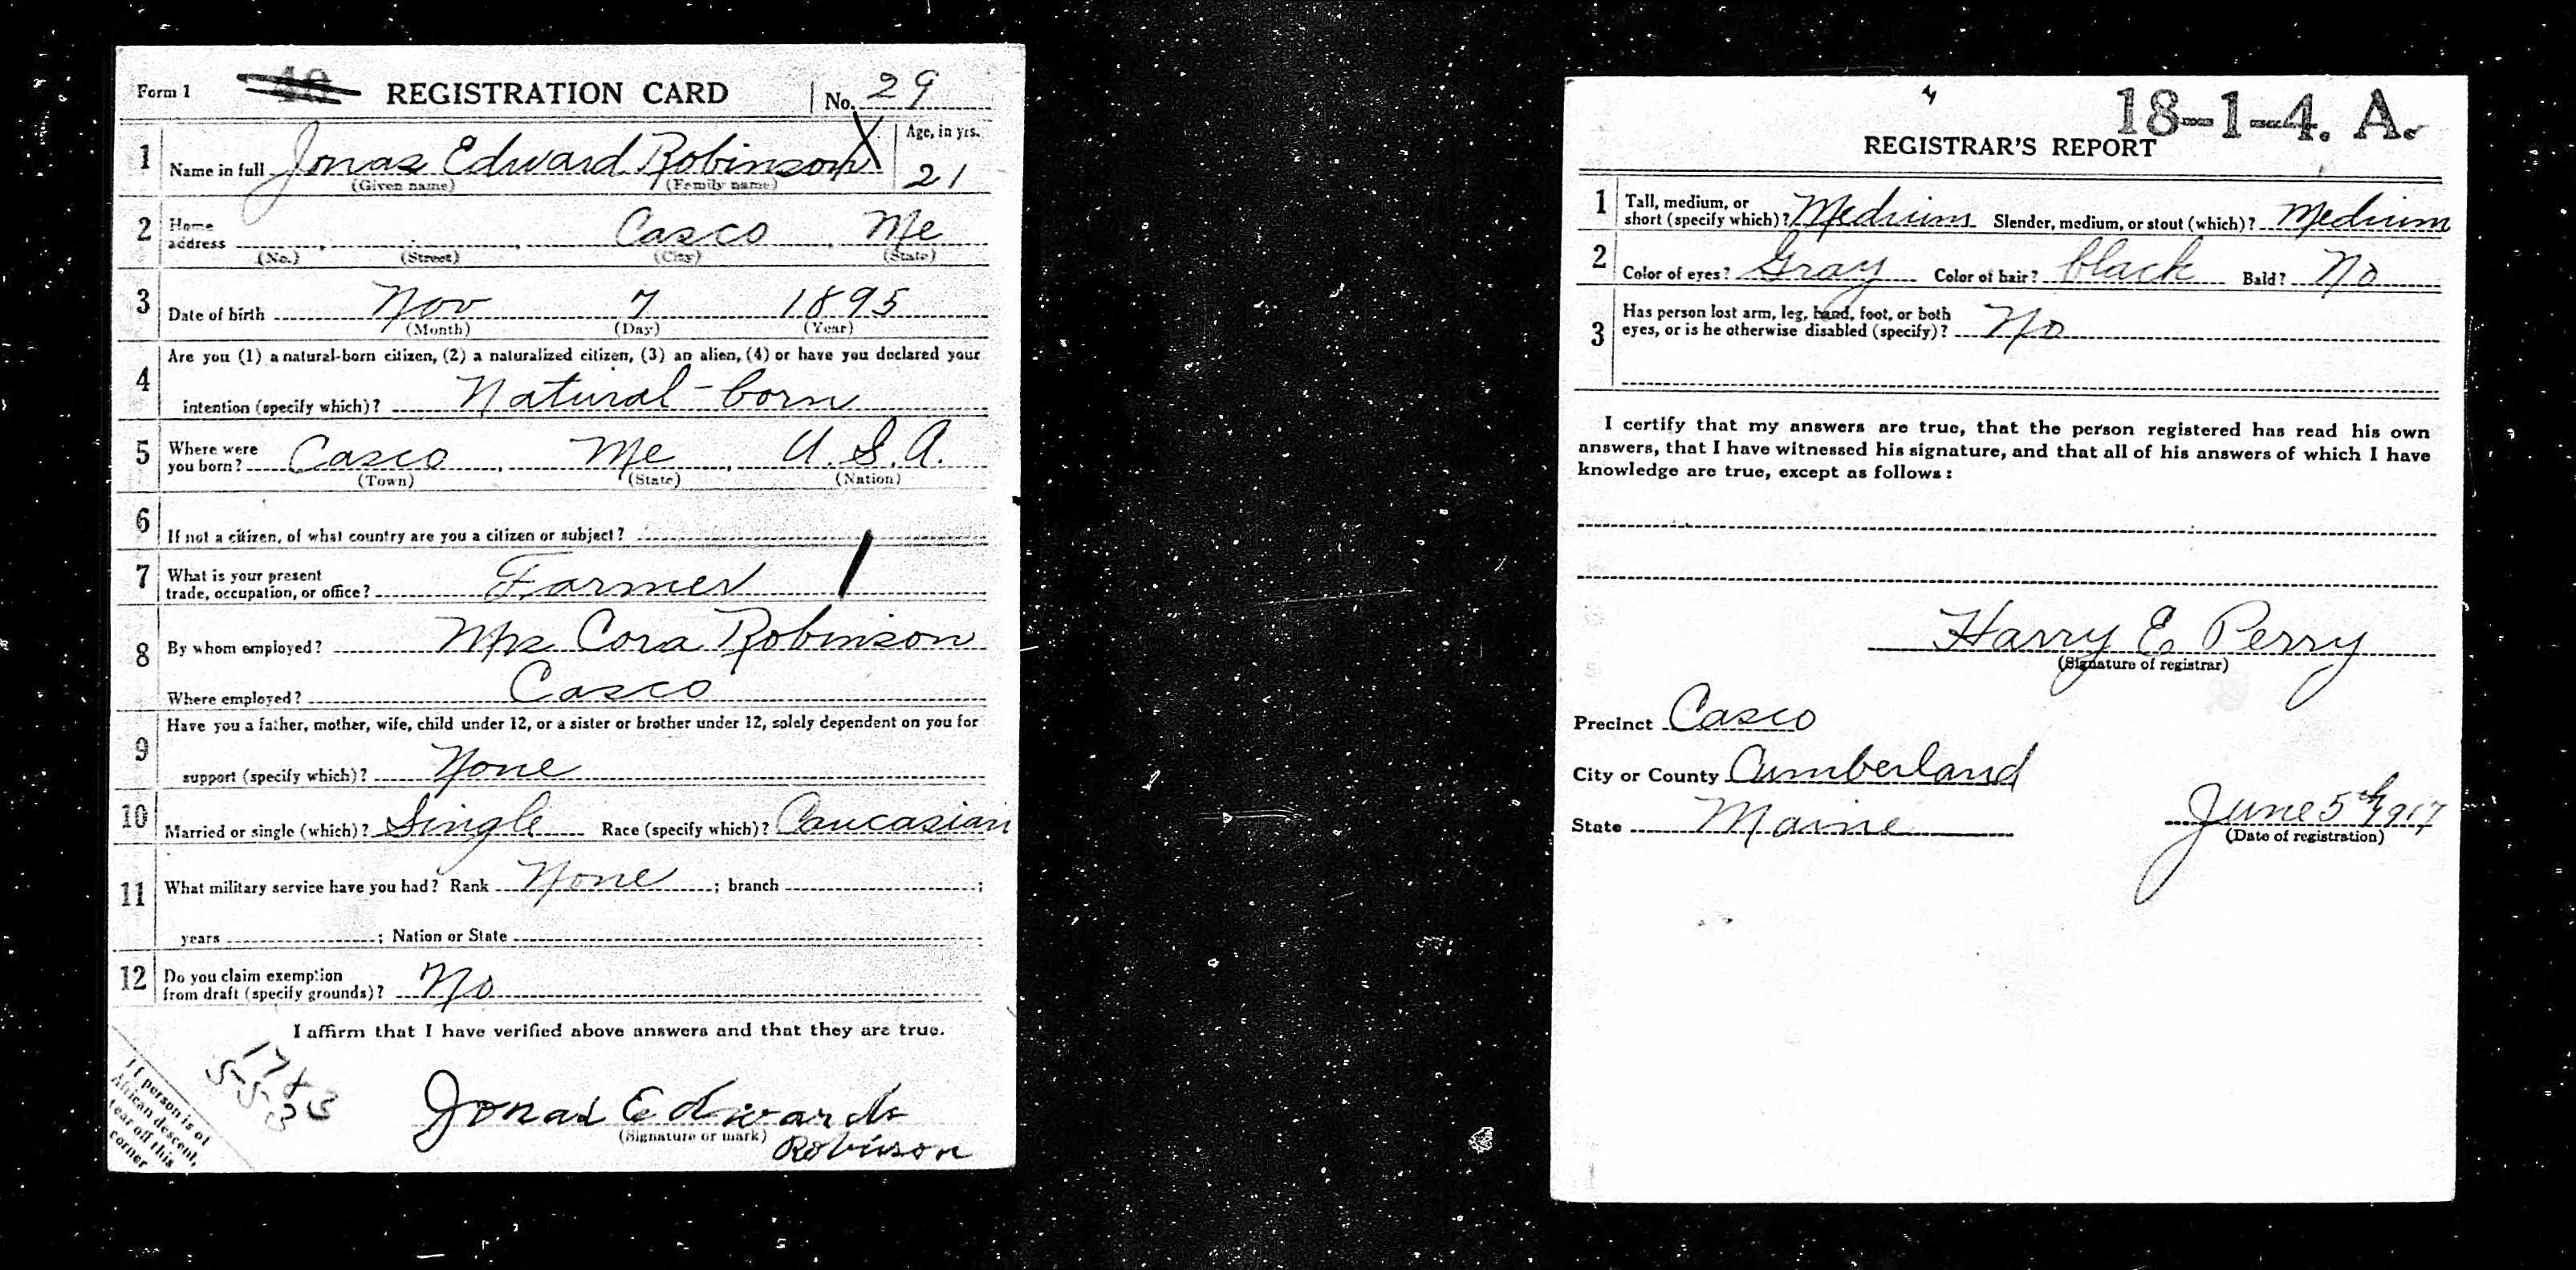 Form 1 REGISTRATION CARD No. 29
1 Name in full Jonas Edward Robinson X Age, in yrs. 21
(Given name) (Family name)
2 Home address Casco Me
(No.) (Street) (City) (State)
3 Date of birth Nov 7 1895
(Month) (Day) (Year)
4 Are you (1) a natural-born citizen, (2) a naturalized citizen, (3) an alien, (4) or have you declared your
intention (specify which)? Natural-born
5 Where were you born? Casco, Me, U.S.A.
(Town) (State) (Nation)
6 If not a citizen, of what country are you a citizen or subject?
7 What is your present
trade, occupation, or office? Farmer
8 By whom employed? Mrs Cora Robinson
Where employed? Casco
9 Have you a father, mother, wife, child under 12, or a sister or brother under 12, solely dependent on you for
support (specify which)? None
10 Married or single (which)? Single Race (specify which)? Caucasian
11 What military service have you had? Rank None ; branch ;
years ; Nation or State
12 Do you claim exemption
from draft (specify grounds)? No
I affirm that I have verified above answers and that they are true.
If person is of
African descent,
tear off this
corner
Jonas Edwards
(Signature or mark)
Robinson
18-1-4. A.
REGISTRAR'S REPORT
1 Tall, medium, or
short (specify which)? Medium Slender, medium, or stout (which)? Medium
2 Color of eyes? Gray Color of hair? black Bald? No
3 Has person lost arm, leg, hand, foot, or both
eyes, or is he otherwise disabled (specify)? No
I certify that my answers are true, that the person registered has read his own
answers, that I have witnessed his signature, and that all of his answers of which I have
knowledge are true, except as follows:
Harry E Perry
(Signature of registrar)
Precinct Casco
City or County Cumberland
State Maine June 5th 1917
(Date of registration)